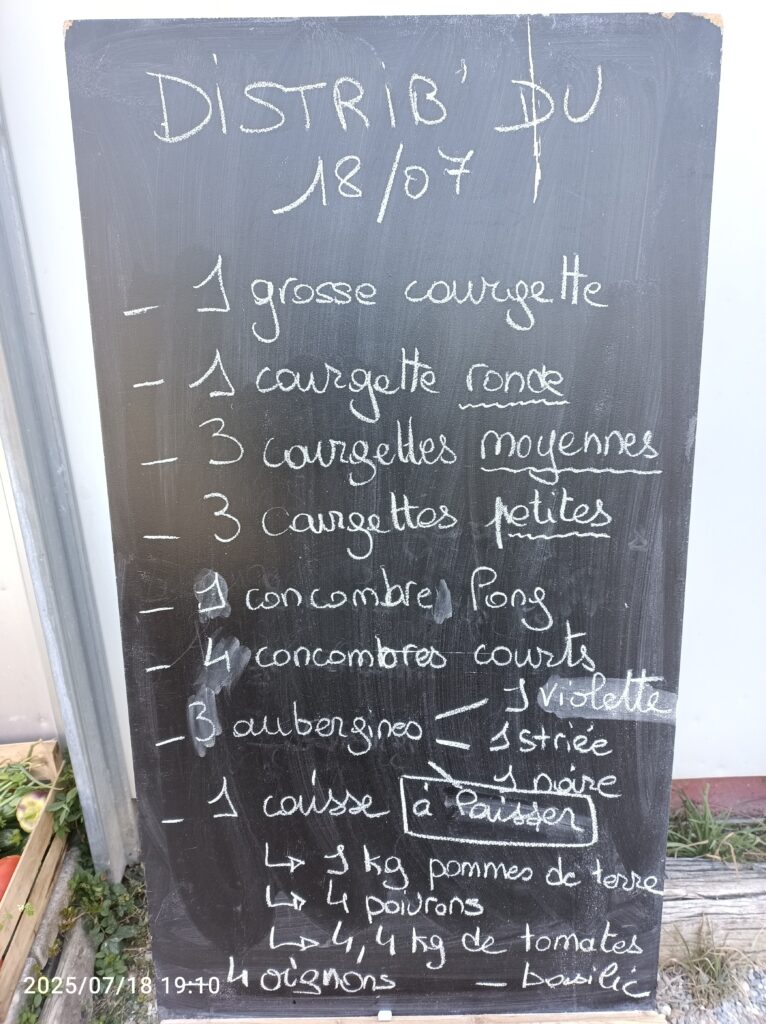 DISTRIB' DU
18/07
- 1 grosse courgette
- 1 courgette ronde
- 3 courgettes moyennes
- 3 courgettes petites
- 1 concombre long
- 4 concombres courts
- 3 aubergines
1 violette
1 striée
1 noire
- 1 caisse à laisser
↳ 1 kg pommes de terre
↳ 4 poivrons
↳ 4,4 kg de tomates
4 oignons - basilic
2025/07/18 19:10